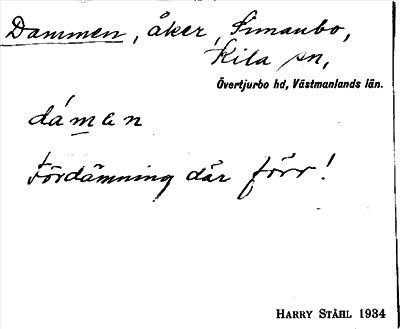 Dammen, åker, Simanbo,
Kila sn,
Övertjurbo hd, Västmanlands län.
dámen
Fördämning där förr!
HARRY STÅHL 1934